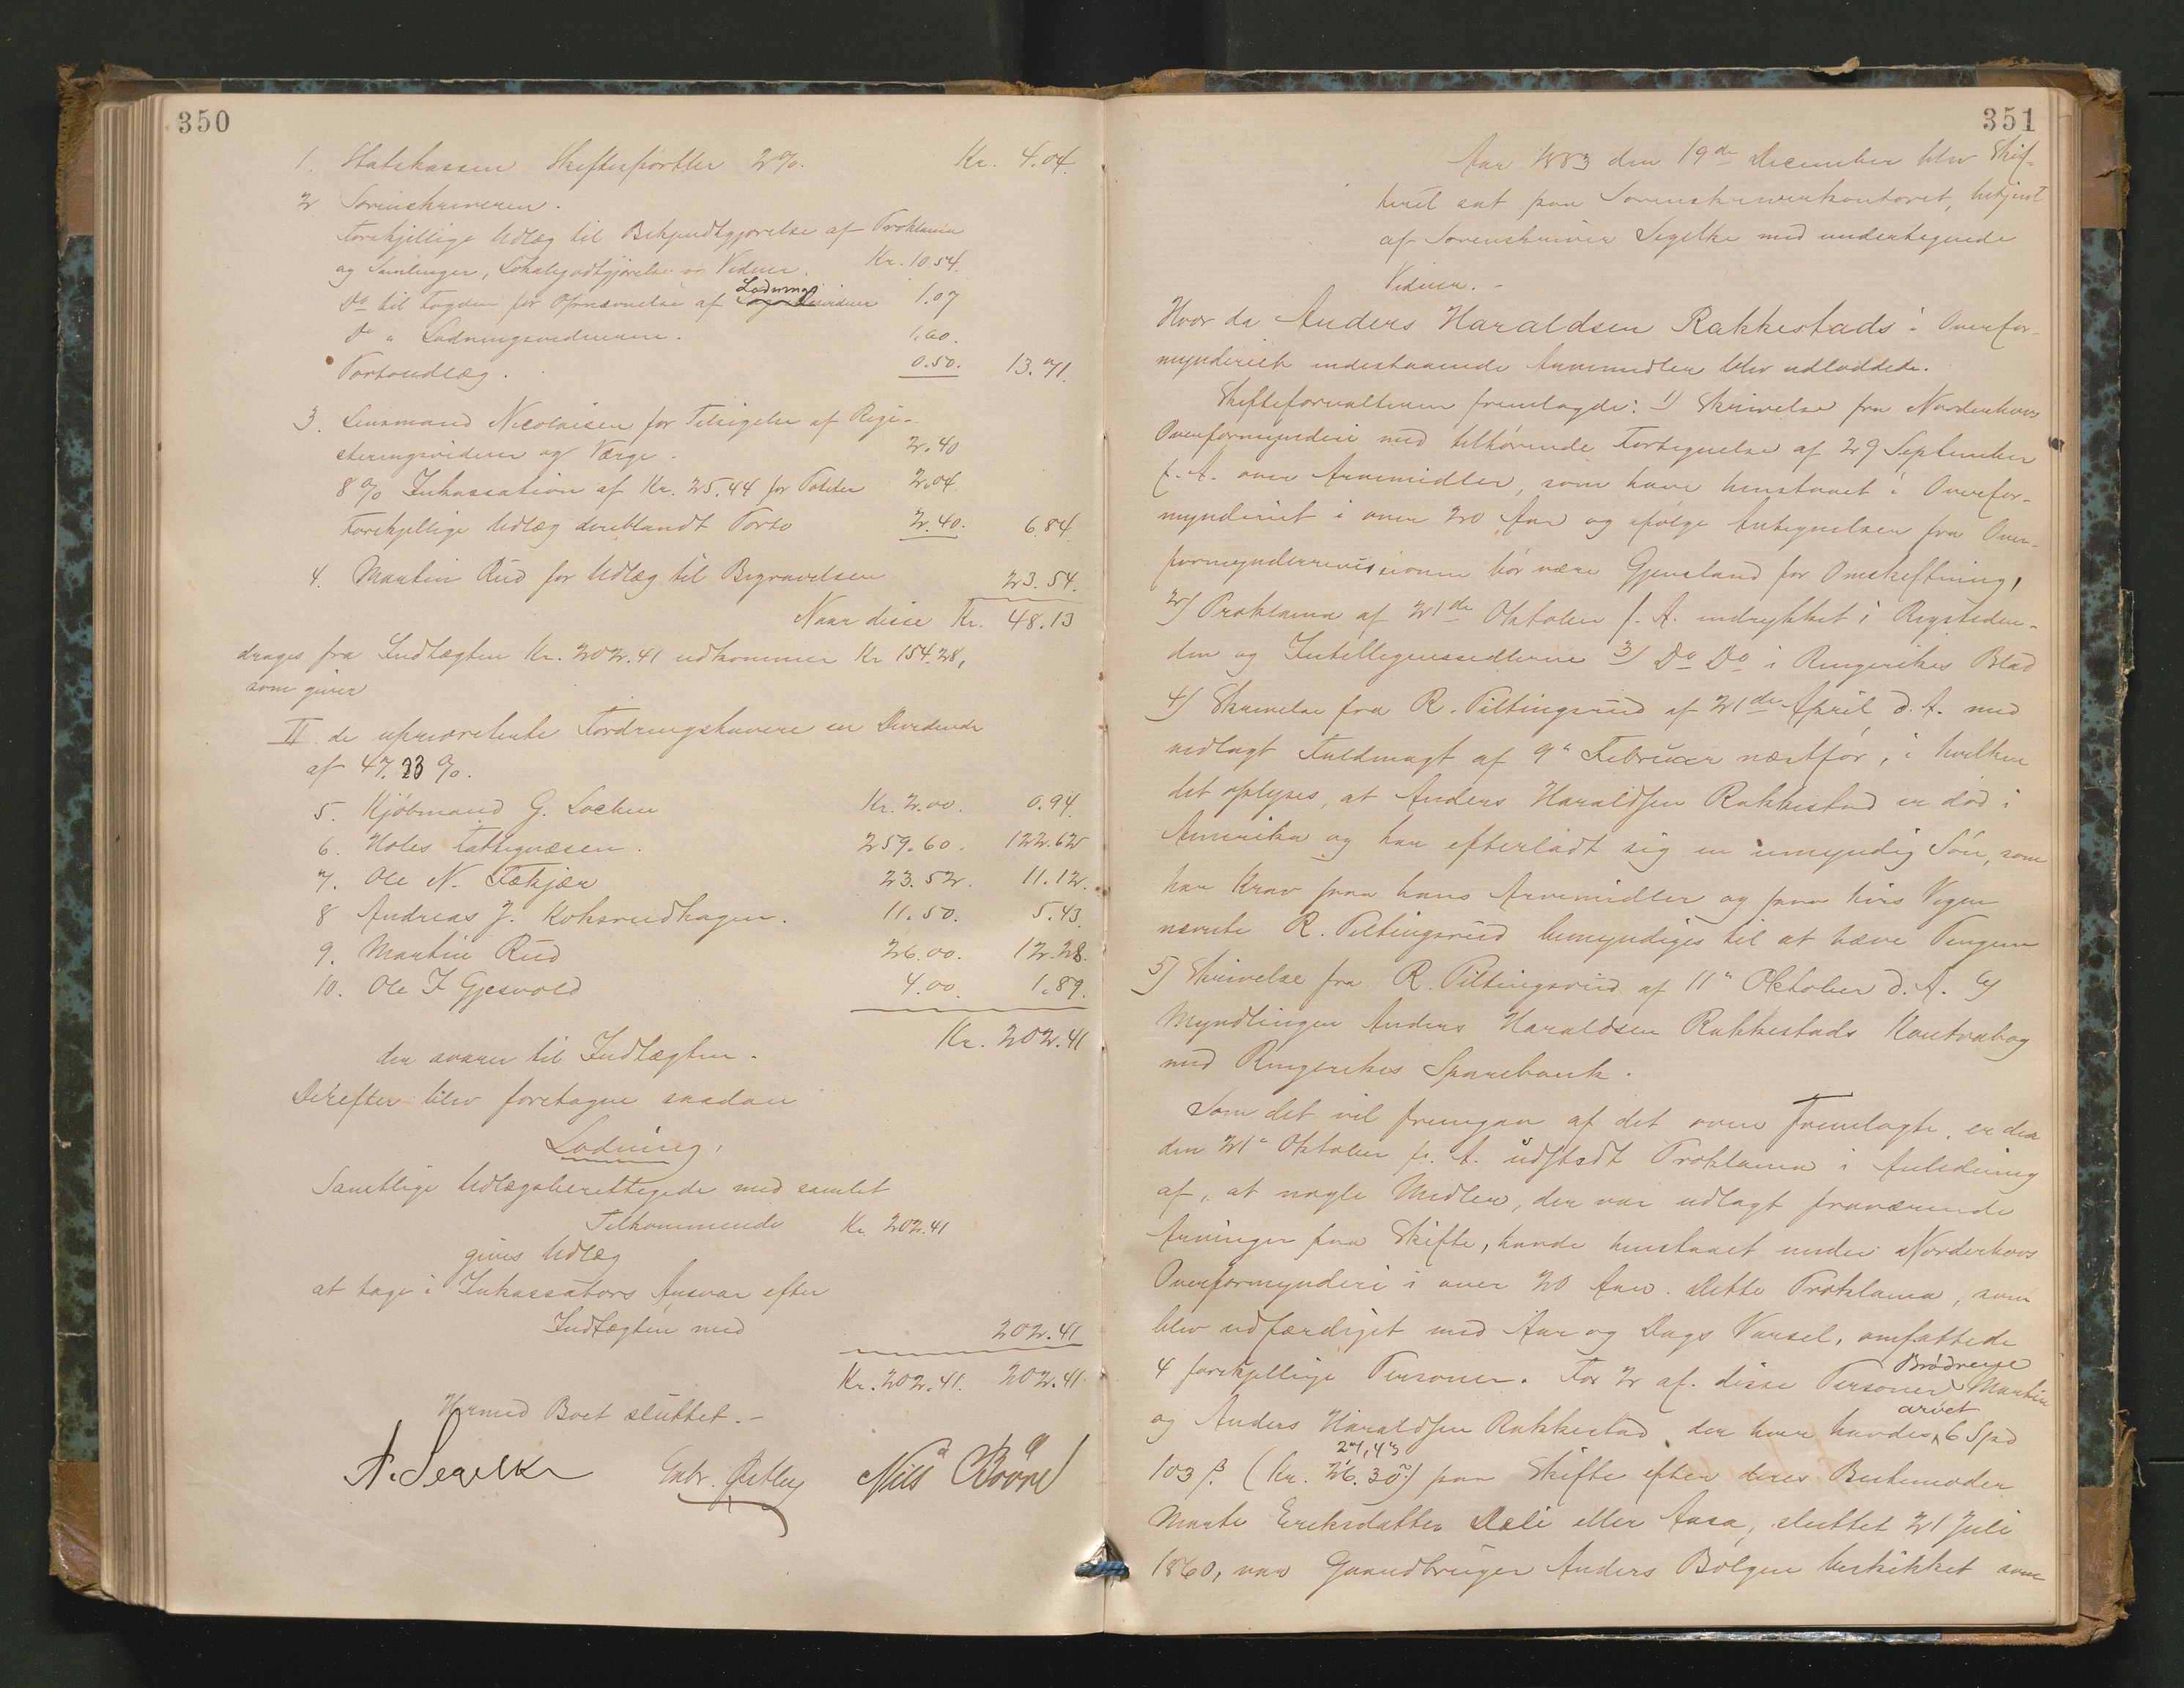 350
1. Statskassen Skiftesportler 2%. Kr. 4.04.
2 Sorenskriveren.
Forskjellige Udlæg til Bekjendtgjørelse af Proklama
og Samlinger, Lokalgodtgjørelse og Vidner. Kr. 10.54.
Do til Fogden for Opnævnelse af Lodningsvidner 1.07
Do " Lodningsvidnerne. 1.60.
Portoudlæg. 0.50. 13.71.
3. Lensmand Nicolaisen for Tilsigelse af Regi-
streringsvidner og Værge. 2.40
8% Inkassation af Kr. 25.44 for Poster 2.04
Forskjellige Udlæg deriblandt Porto 2.40. 6.84.
4. Martin Rud for Udlæg til Begravelsen 23.54.
Naar disse Kr. 48.13
drages fra Indtægten Kr. 202.41 udkommer Kr 154.28,
som giver
II de uprioriterte Fordringshavere en Dividende
af 47.23 %.
5. Kjøbmand G. Lochen Kr. 2.00. 0.94.
6. Holes Fattigvæsen. 259.60. 122.62
7. Ole N. Fekjær 23.52. 11.12.
8 Andreas J. Koksrudhagen. 11.50. 5.43.
9. Martin Rud 26.00. 12.28.
10. Ole I Gjesvold 4.00. 1.89.
Kr. 202.41
der svarer til Indtægten.
Derefter blev foretagen saadan
Lodning.
Samtlige Udlægsberettigede med samlet
Tilkommende Kr 202.41
gives Udlæg
at tage i Inkassators Ansvar efter
Indtægten med 202.41
Kr. 202.41. 202.41.
Hermed Boet sluttet.-
A. Segelke Nils Børve
351
Aar 1883 den 19de December blev Skif-
teret sat paa Sorenskriverkontoret, betjent
af Sorenskriver Segelke med undertegnede
Vidner.-
Hvor da Anders Haraldsen Rakkestads i Overfor-
mynderiet indestaaende Arvemidler blev udloddede.
Skifteforvalteren fremlagde: 1) Skrivelse fra Norderhovs
Overformynderi med tilhørende Fortegnelse af 29 September
f. A. over Arvemidler, som have henstaaet i Overfor-
mynderiet i over 20 Aar og ifølge Antegnelsen fra Over-
formynderrevisionen bør være Gjenstand for Omskiftning,
2) Proklama af 21de Oktober f. A. indrykket i Rigstiden-
den og Intelligenssedlerne 3) Do Do i Ringerikes Blad
4) Skrivelse fra R. Tiltingsrud af 21de April d. A. med
vedlagt Fuldmagt af 9" Februar næstfør, i hvilken
det oplyses, at Anders Haraldsen Rakkestad er død i
Amerika og har efterladt sig en umyndig Søn, som
har Krav paa hans Arvemidler og paa hvis Vegne
nævnte R. Tiltingsrud bemyndiges til at hæve Pengene
5) Skrivelse fra R. Tiltingsrud af 11" Oktober d. A. 6)
Myndlingen Anders Haraldsen Rakkestads Kontrabog
med Ringerikes Sparebank.
Som det vil fremgaa af det oven Fremlagte, er der
den 21" Oktober f. A. udstedt Proklama i Anledning
af, at nogle Midler, der var udlagt fraværende
Arvinger paa Skifte, havde henstaaet under Norderhovs
Overformynderi i over 20 Aar. Dette Proklama, som
blev udfærdiget med Aar og Dags Varsel, omfattede
4 forskjellige Personer. For 2 af disse Personer, Brødrene Martin
og Anders Haraldsen Rakkestad, der hver havde arvet 6 Spd
103 ß. (Kr. 26.30) 27,43 paa Skifte efter deres Bestemoder
Marte Eriksdatter Deli eller Aasa, sluttet 21 Juli
1860, var Gaardbruger Anders Bølgen beskikket som